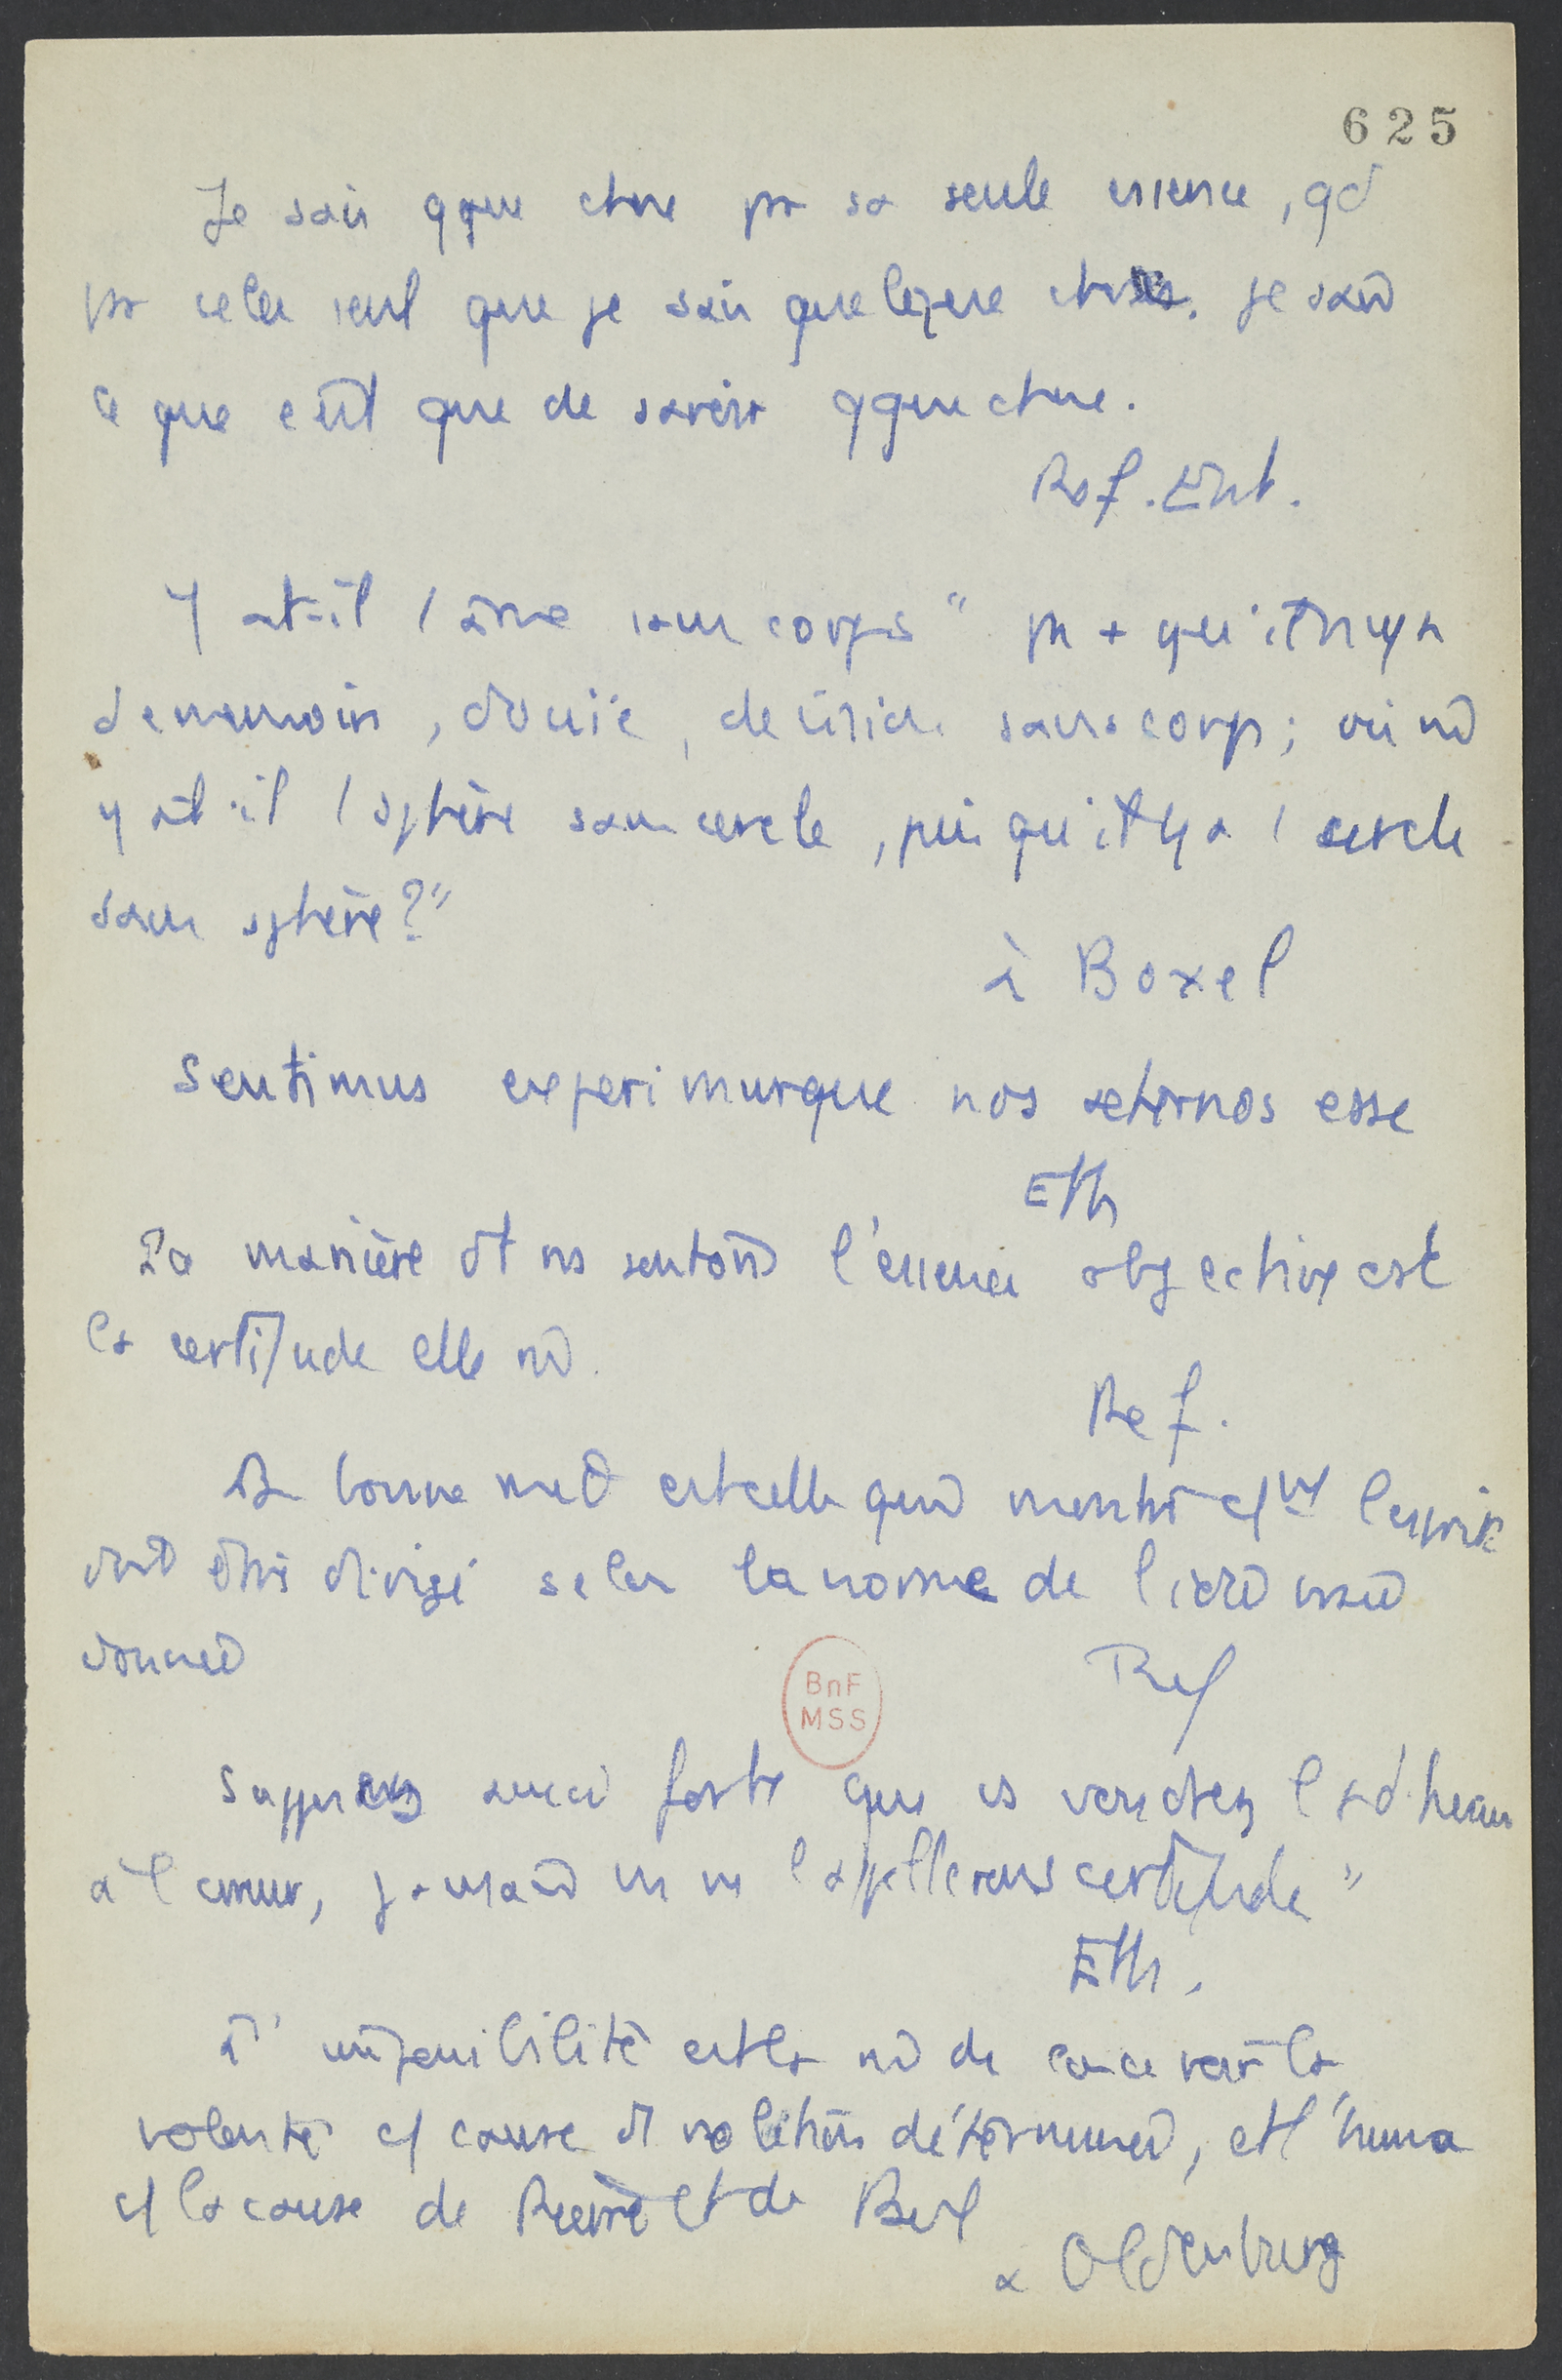 625
Je sais qque chose pr sa seule essence, qd
pr cela seul que je sais quelque chose. je sais
ce que c'est que de savoir qque chose.
Ref. Ent.
Y at-il 1 âme sans corps "
de mémoire, d'ouïe, de vision sans corps ; ou
y at-il 1 sphère sans cercle, puisqu'il y a 1 cercle
sans sphère ?"
à Boxel
Sentimus experimurque nos aeternos esse
Eth
La manière dt ns sentons l'essence objective est
la certitude elle
Ref.
La bonne est celle qui montre l'esprit
être dirigé selon la norme de l'idée
donnée
BnF
MSS
Ref
Supposez aussi forte que vs voudrez l'adhésion
à l'erreur, jamais ns ne l'appellerons certitude "
Eth.
L'impossibilité est la de concevoir la
volonté cause volitions déterminées, et l'huma
la cause de Pierre et de Paul
a Oldenburg